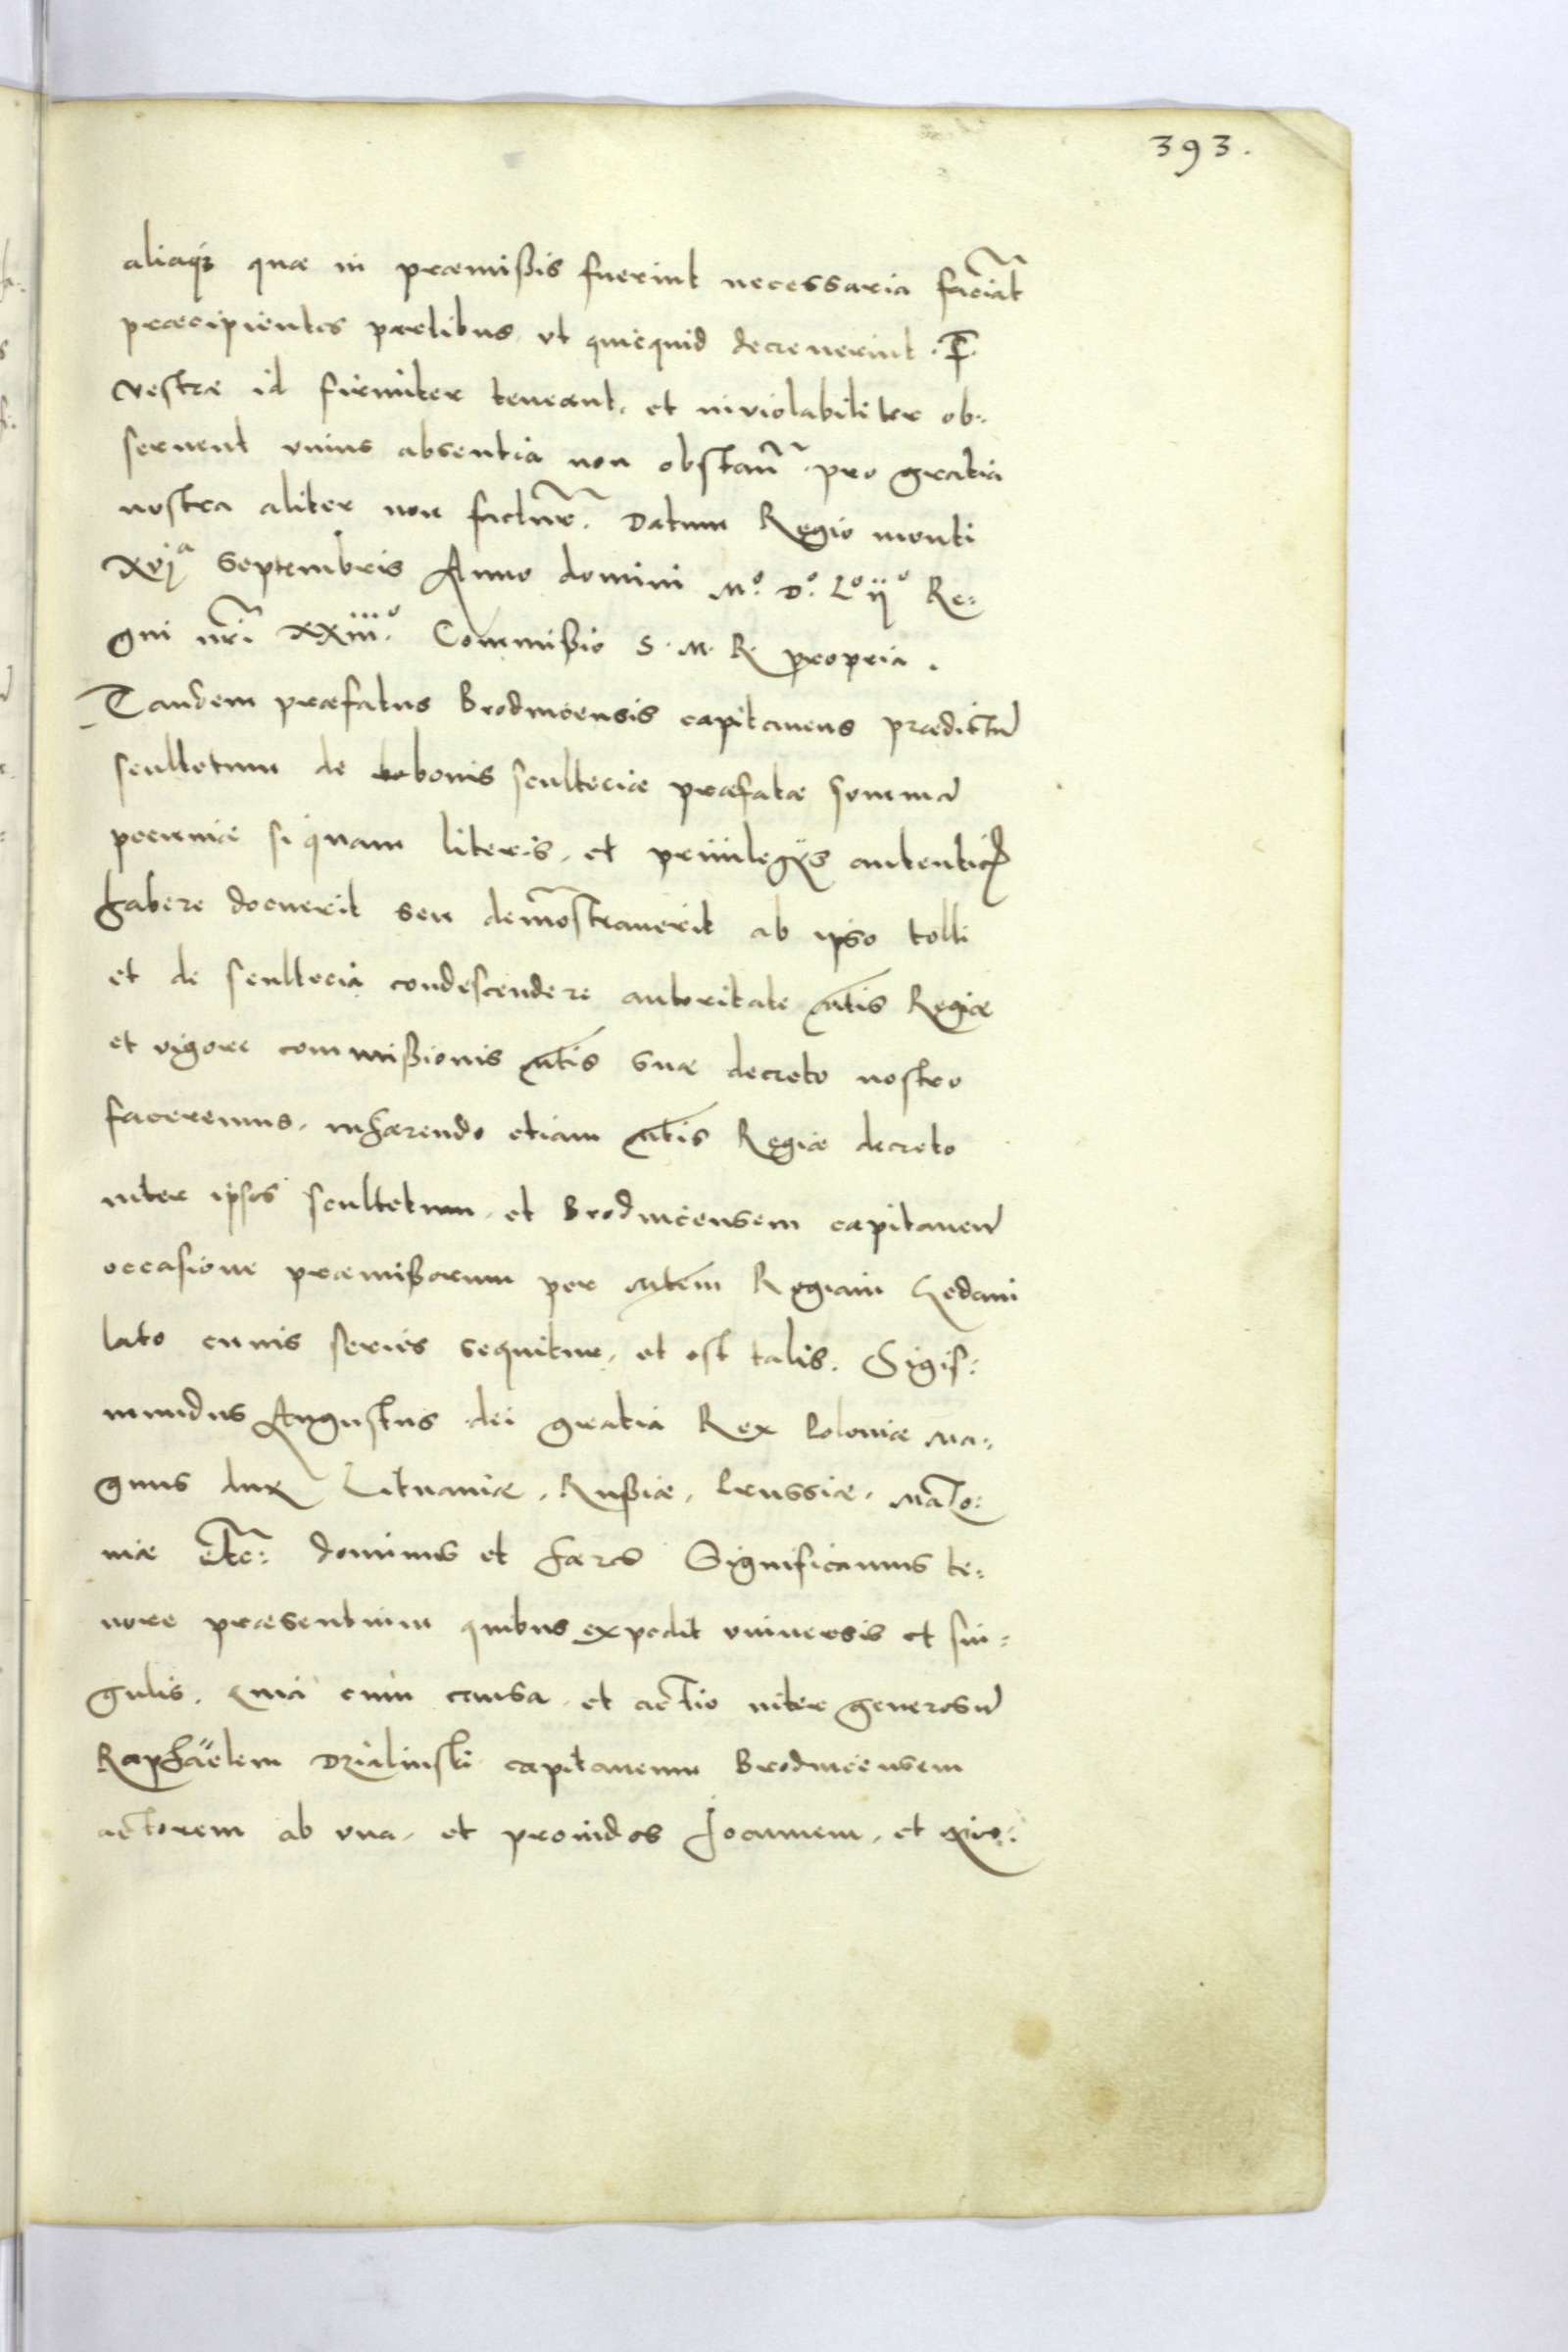 393.
aliaq3 quæ in præmißis fuerint necessaria faciāt
præcipientes partibus ut quicquid decreverint . F.
vestræ id firmiter teneant, et inviolabiliter ob-
servent unius absentia non obstan̄ pro gratia
nostra aliter non factur̄. Datum Regio monti
xvjᵃ Septembris Anno domini Mº. Dº. Lº ijº Re-
gni nr̄i XXiiiº. Commißio S. M. R. propria.
Tandem præfatus Brodnicensis capitaneus prædictū
scultetum de bonis scultetiæ præfatæ sommā
pecuniæ si quam literis, et privilegijs autentic
habere docuerit seu demōstraverit ab ipso tolli
et de scultetia condescendere autoritate Mtis Regiæ
et vigore commißionis Mtis suæ decreto nostro
faceremus. inhærendo etiam Mtis Regiæ decreto
inter ipsos scultetum, et Brodnicensem capitaneū
occasione præmißorum per Mtem Regiam Gedani
lato cuius series sequitur, et est talis. Sigis-
mundus Augustus dei gratia Rex Poloniæ Ma-
gnus dux Lituaniæ, Rußiæ, Prussiæ, Maſo-
uiæ etc: dominus et hæres Significamus te-
nore præsentium quibus expedit universis et sin-
gulis. Quia cum causa, et actio inter generosū
Raphaëlem Dzialinski capitaneum Brodnicensem
actorem ab una, et providos Joannem, et